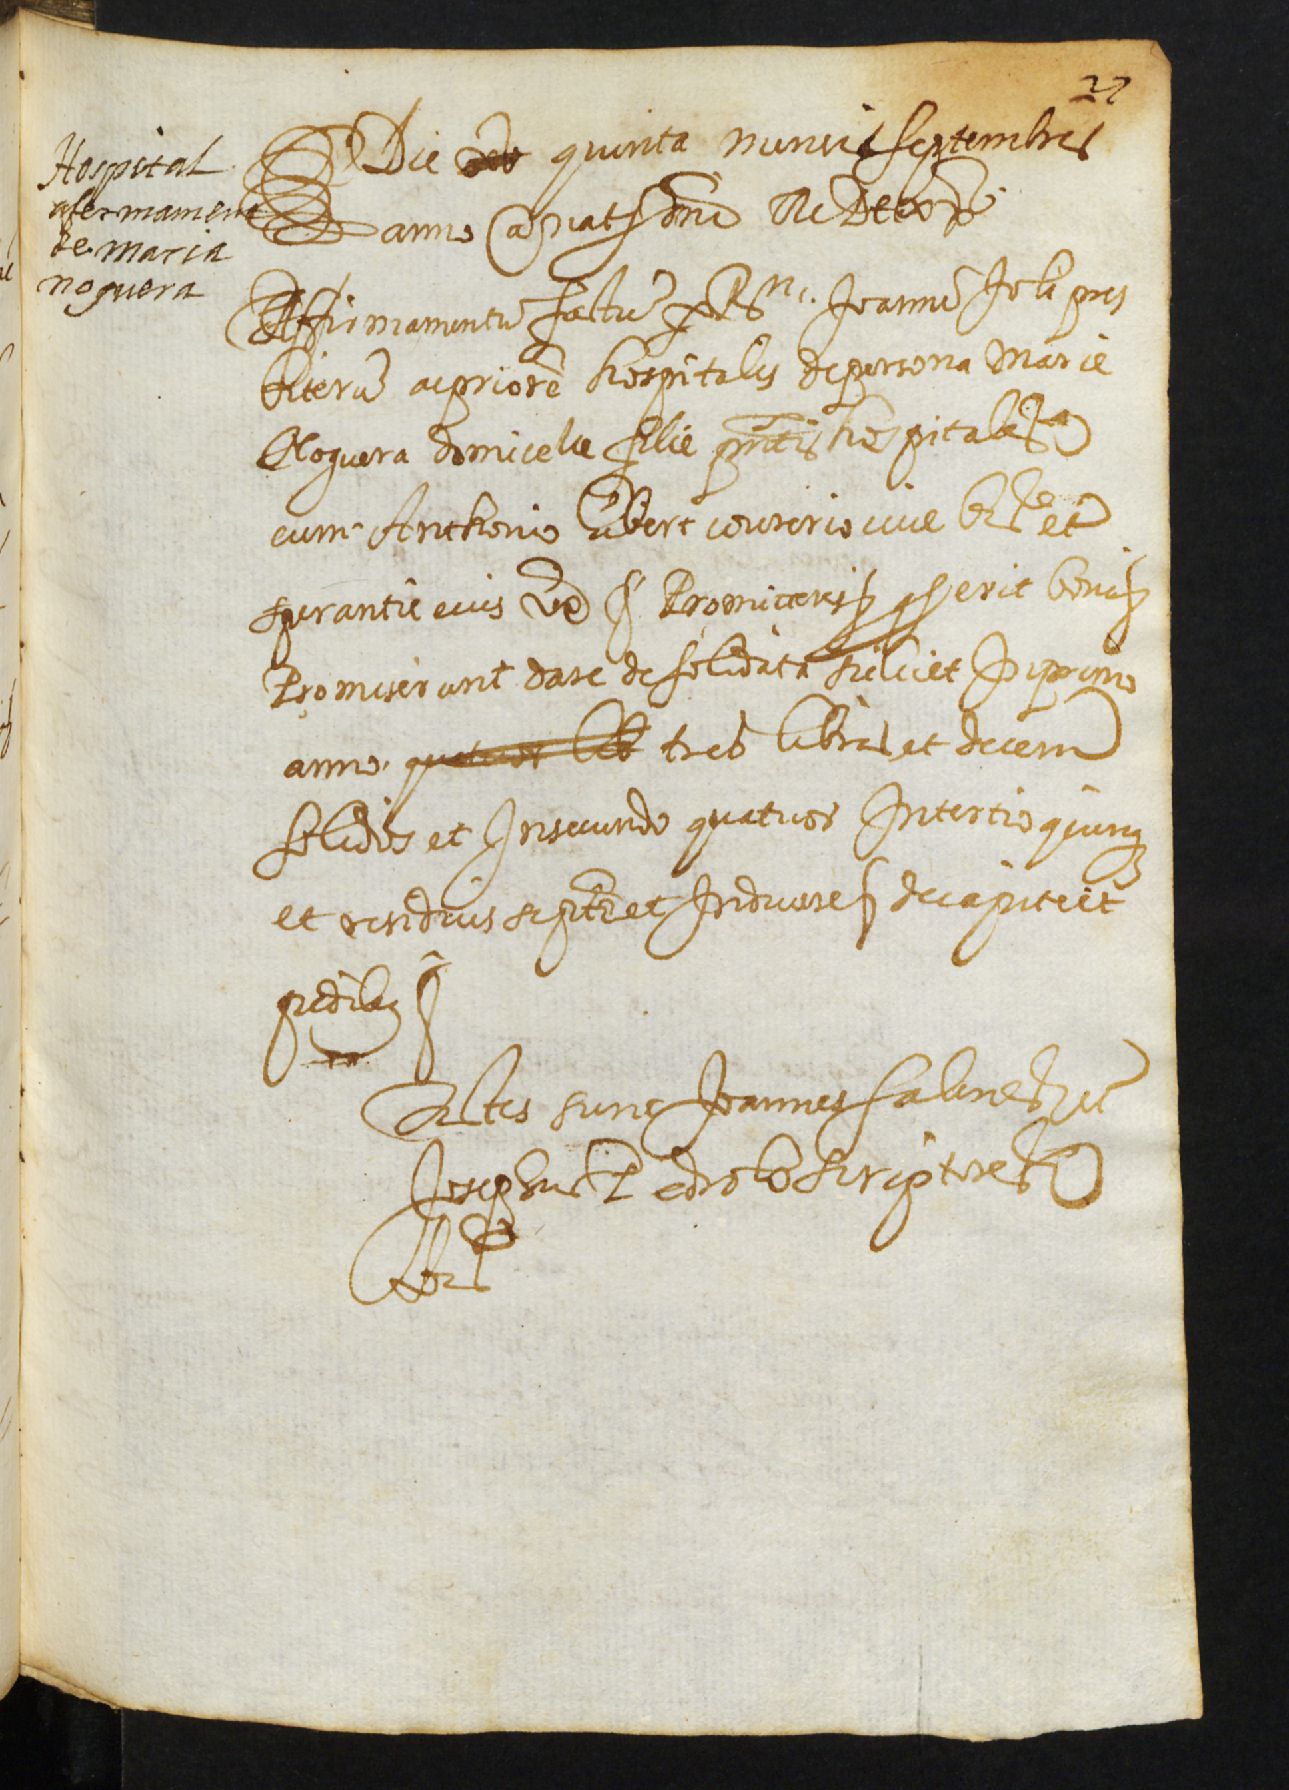 27
Hospital
afermament
de maria
noguera
Die quinta mensis septembris
anno a nat dni MDC
Affirmamentũ factũ p Joannẽ Jola pres
biterũ ac priorẽ hospitalis de persona Marie
Noguera domicelle filie pntis hospitalis
cum Anthonio ubert civie et
sperantie eius Promictens erit
Promiserunt dare de solidata scilicet In primo
anno quatuor tres libras et decem
solidos et In secundo quatuor In tertio quinq
et residuis septẽ et Induere de capite et
pedibus
testes sunt Joannes sabines et
Josephus Pedrolo scriptores